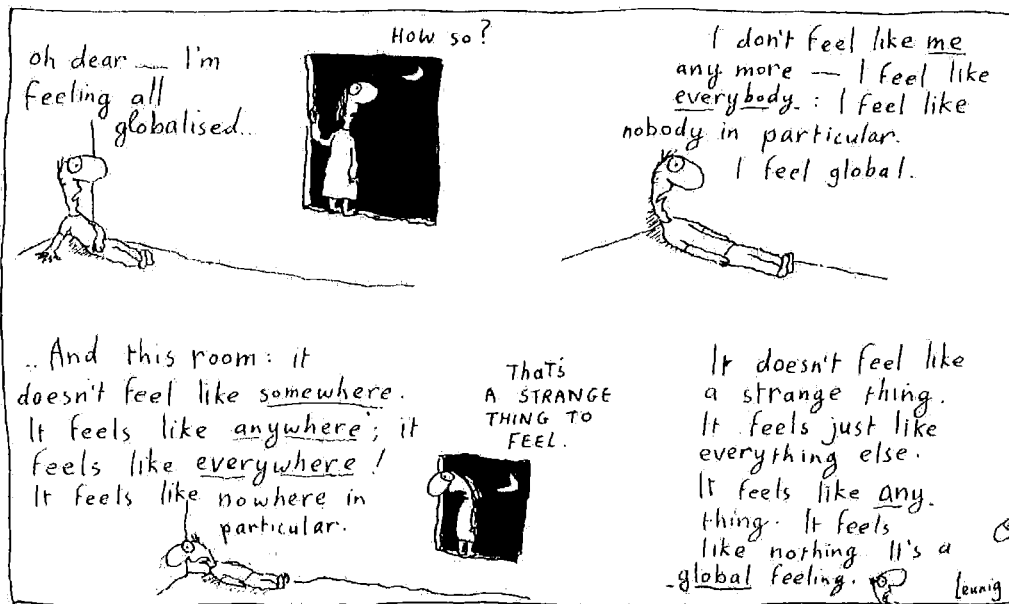 oh dear — I'm
feeling all
globalised..
How so?
I don't feel like me
any more — I feel like
everybody. : I feel like
nobody in particular.
I feel global.
.. And this room: it
doesn't feel like somewhere.
It feels like anywhere; it
feels like everywhere!
It feels like nowhere in
particular.
That's
A STRANGE
THING TO
FEEL.
It doesn't feel like
a strange thing.
It feels just like
everything else.
It feels like any.
thing. It feels
like nothing. It's a
global feeling.
Leunig